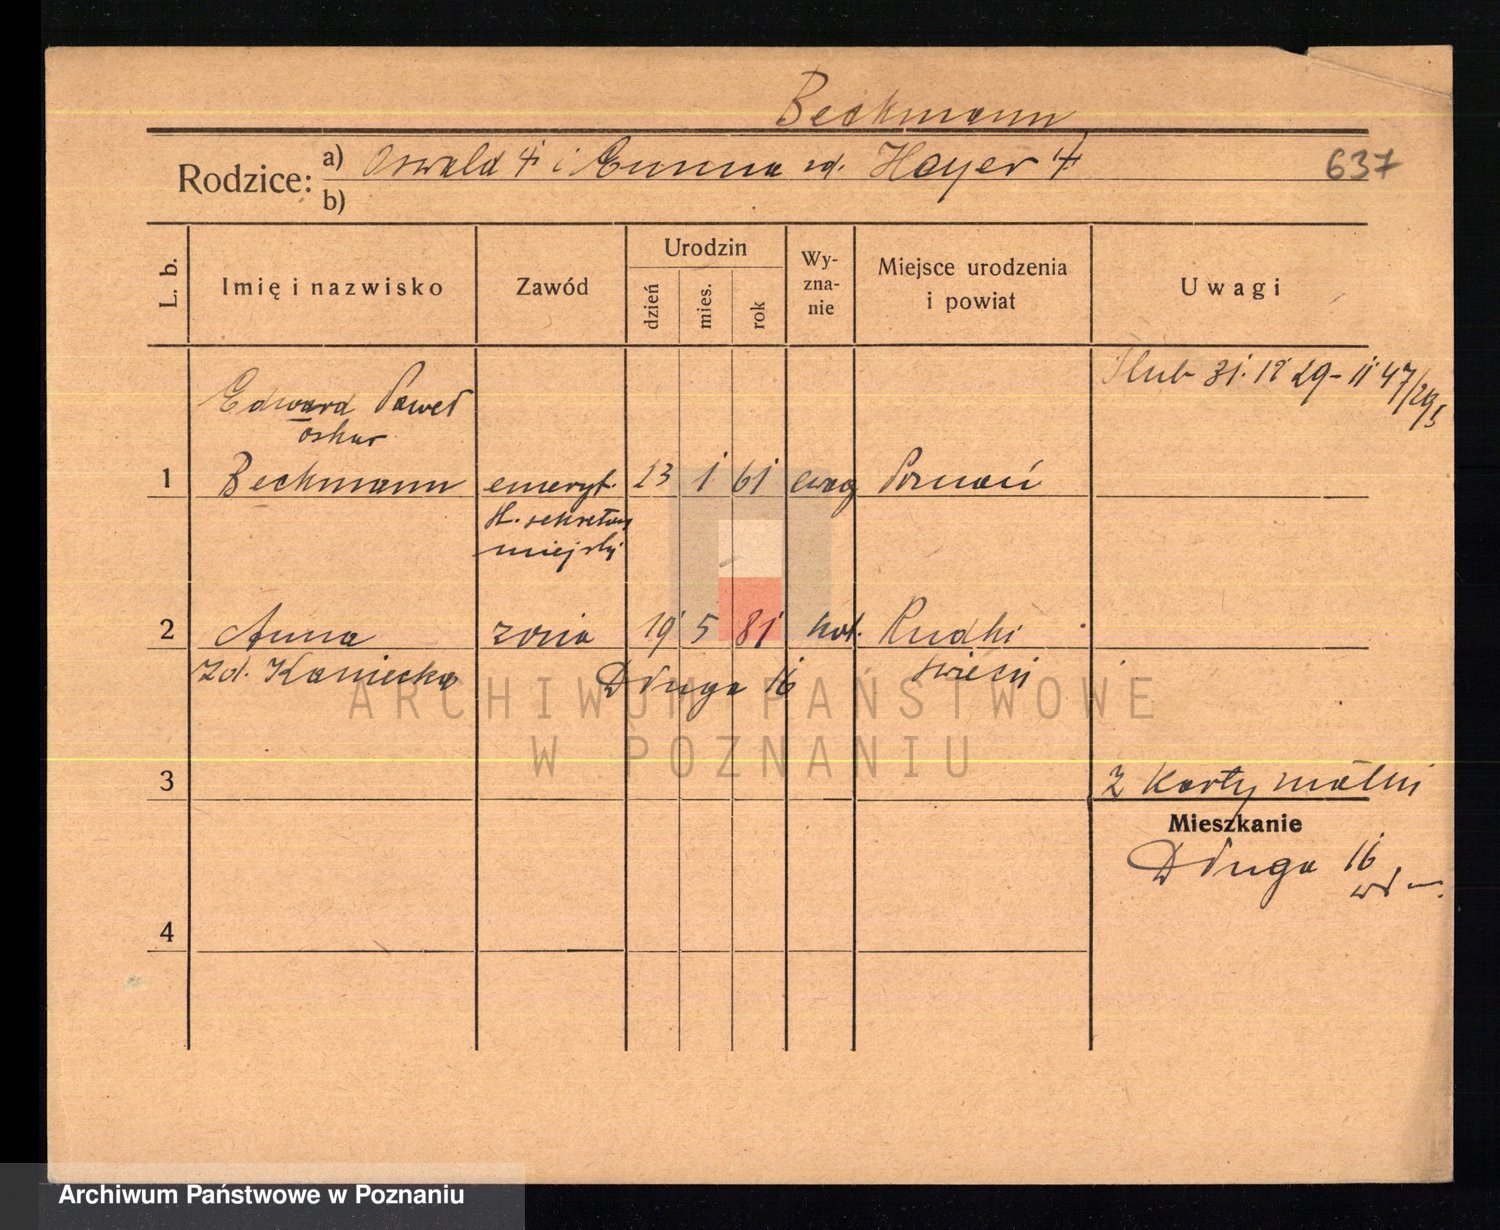 Beckmann
Rodzice: a) Oswald † i Emma zd. Heyer †
637
b)
L. b.
Imię i nazwisko
Zawód
Urodzin
dzień
mies.
rok
Wy-
zna-
nie
Miejsce urodzenia
i powiat
Uwagi
Ślub 31. 12 29 - 11 47/29
Edward Paweł
Oskar
1 Beckmann emeryt. 23 1 61 ewag Poznań
st. sekretarz
miejski
2 Anna żona 19 5 81 kat. Rudki
zd. Kaniecka Długa 16
ARCHIWUM PAŃSTWOWE
W POZNANIU
3
2 Karty
Mieszkanie
Długa 16
4
Archiwum Państwowe w Poznaniu